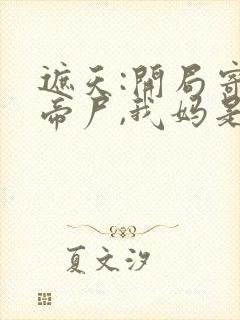 遮天:開局寄
帝尸,我妈是
夏文汐